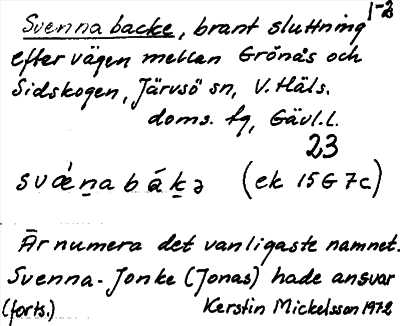 1-2
Svennabacke, brant sluttning
efter vägen mellan Grönås och
Sidskogen, Järvsö sn, V. Häls.
doms. fg, Gävl.l.
23
(ek 15 G 7c)
Är numera det vanligaste namnet.
Svenna-Jonke (Jonas) hade ansvar
(forts.) Kerstin Mickelsson 1972